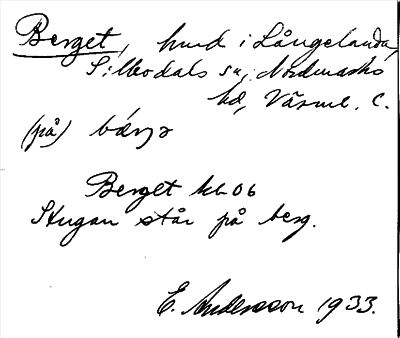 Berget, hmd i Långelanda,
Sillbodals sn, Nordmarks
hd, Värml. l.
(på) bærjə
Berget kb 06
Stugan står på berg.
E. Andersson 1933.